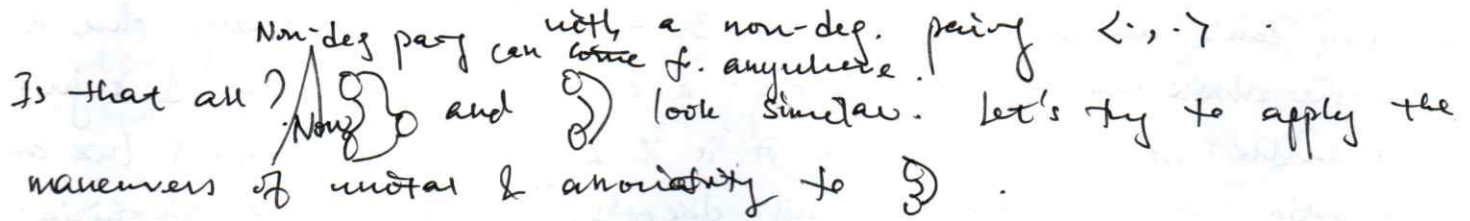 with a non-deg. pairing <·,·>.
Non-deg parg can come f. anywhere.
Is that all? Now and look similar. Let's try to apply the
maneuvers of unital & associativity to .